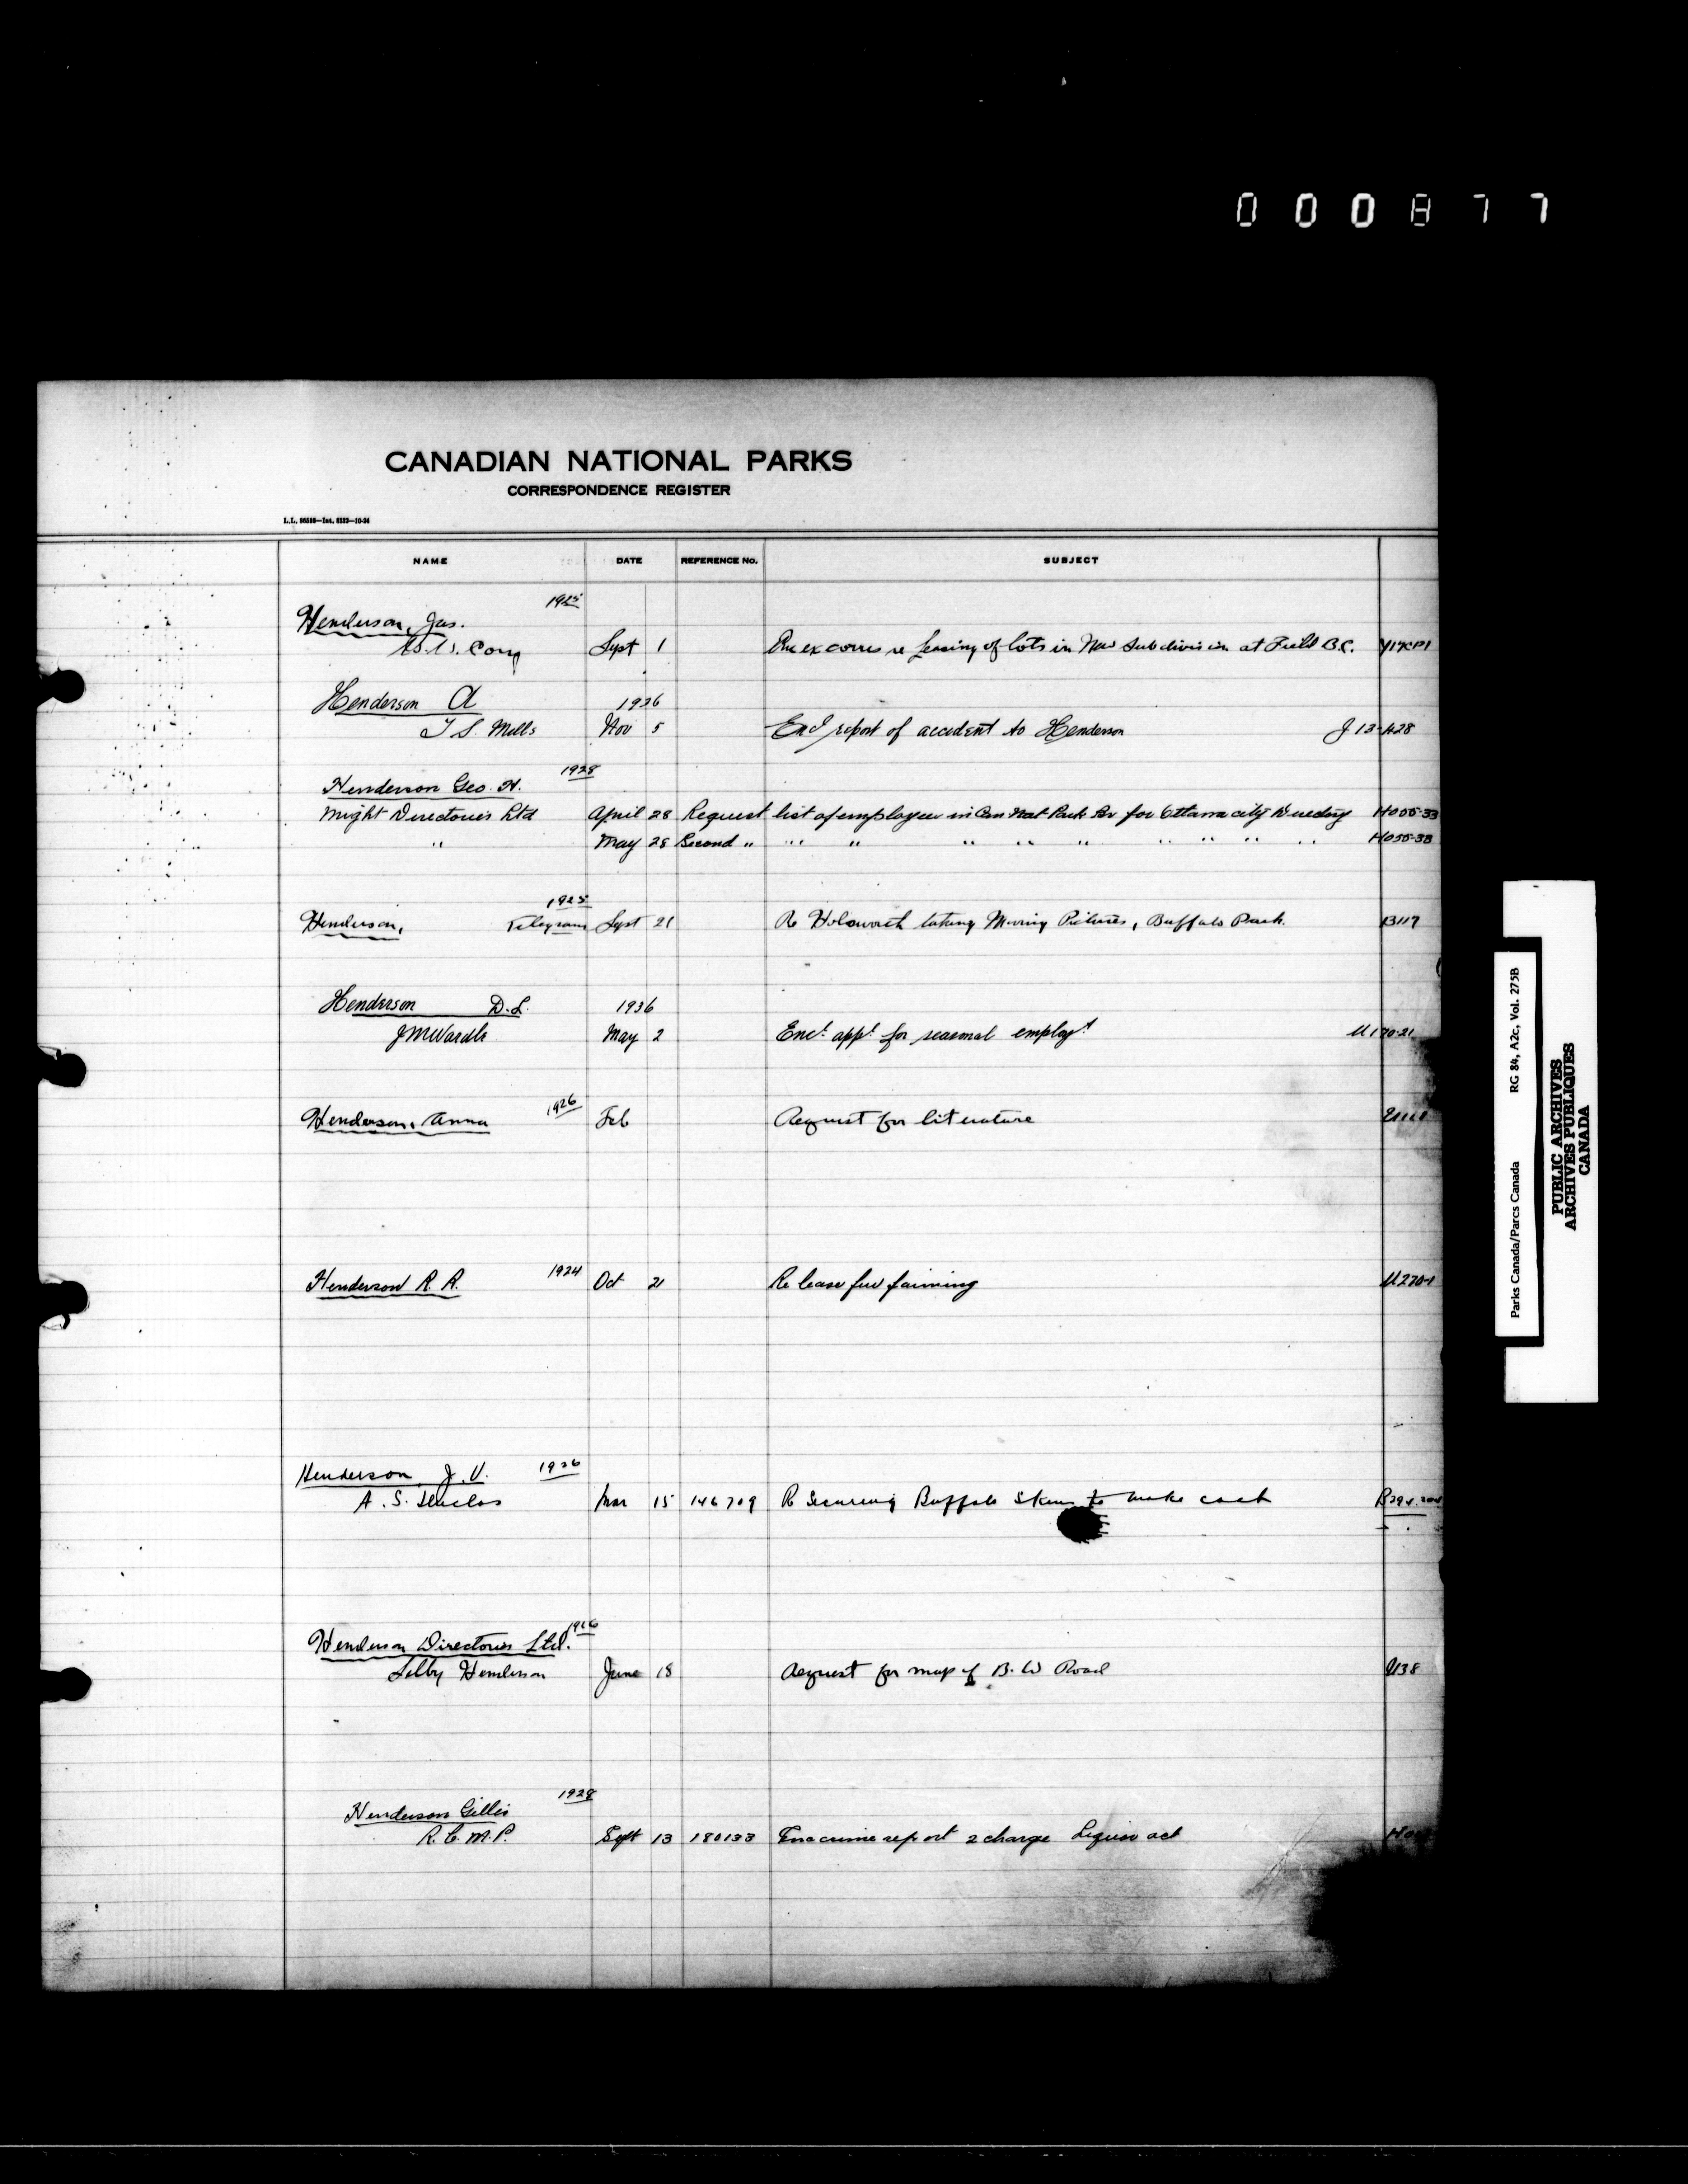 000877
CANADIAN NATIONAL PARKS
CORRESPONDENCE REGISTER
L.L. 86518—Int. 8133—10-24
NAME DATE REFERENCE No. SUBJECT
1925
Henderson, Jas.
Sept 1 corres re leasing of lots in New Subdivision at Field B.C.
Henderson A 1926
T S. Mills Nov 5 Encl report of accident to Henderson J 13-H28
1928
Henderson Geo. H.
Might Directories Ltd April 28 Request list of employees in Can Nat Park for Ottawa city Directory H055-33
" May 28 Second " " " " " " " " " H055-33
1925
Henderson, Telegram Sept 21 Re Holsworth taking Moving Pictures, Buffalo Park. B117
Henderson D.L. 1936
J M Wardle May 2 Encl. appl. for seasonal employt U170-21
Henderson, Anna 1926 Feb Request for literature
Henderson R A. 1924 Oct 21 Re lease fur farming U270-1
Henderson J.V. 1926
A. S. Duclos Mar 15 146709 Re Securing Buffalo Skins to make coat
Henderson Directories Ltd. 1926
Henderson June 18 Request for map of B. W Road U38
1928
Henderson Gillis
R.C.M.P. Sept 13 180133 Enc crime report charge Liquor act
Parks Canada/Parcs Canada RG 84, A2c, Vol. 275B
PUBLIC ARCHIVES
ARCHIVES PUBLIQUES
CANADA